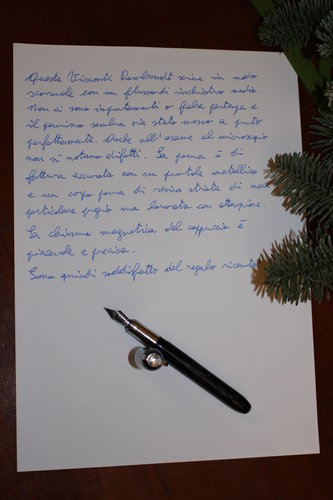 Questa Visconti Rembrandt scrive in modo
scorrevole con un flusso di inchiostro medio.
Non ci sono impuntamenti o false partenze e
il pennino sembra sia stato messo a punto
perfettamente. Anche all'esame al microscopio
non si notano difetti. La penna è di
fattura accurata con un puntale metallico
e un corpo penna di resina striata di non
particolare pregio ma lavorata con attenzione.
La chiusura magnetica del cappuccio è
piacevole e precisa.
Sono quindi soddisfatto del regalo ricevuto